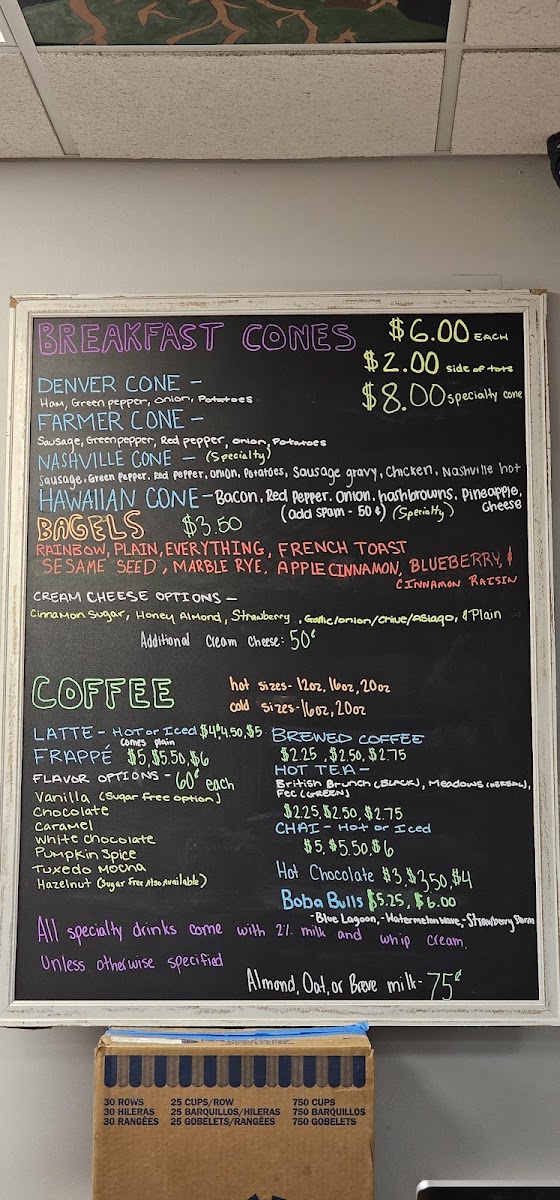 BREAKFAST CONES $6.00 EACH
$2.00 side of tots
DENVER CONE -
$8.00 specialty cone
Ham, Green pepper, onion, Potatoes
FARMER CONE -
Sausage, Green pepper, Red pepper, onion, Potatoes
NASHVILLE CONE - (Specialty)
Sausage, Green Pepper, Red pepper, onion, Potatoes, Sausage gravy, Chicken, Nashville hot
HAWAIIAN CONE - Bacon, Red Pepper, Onion, hashbrowns, Pineapple, cheese
(add spam - 50¢) (Specialty)
BAGELS $3.50
RAINBOW, PLAIN, EVERYTHING, FRENCH TOAST
SESAME SEED, MARBLE RYE, APPLE CINNAMON, BLUEBERRY, &
CINNAMON RAISIN
CREAM CHEESE OPTIONS -
Cinnamon Sugar, Honey Almond, Strawberry, Garlic/onion/chive/Asiago, & Plain
Additional Cream Cheese: 50¢
COFFEE
hot sizes - 12oz, 16oz, 20oz
cold sizes - 16oz, 20oz
LATTE - Hot or Iced $4 $4.50, $5
comes plain
FRAPPÉ $5, $5.50, $6
FLAVOR OPTIONS - 60¢ each
Vanilla (Sugar Free Option)
Chocolate
Caramel
White Chocolate
Pumpkin Spice
Tuxedo Mocha
Hazelnut (Sugar Free Also Available)
BREWED COFFEE
$2.25, $2.50, $2.75
HOT TEA -
British Brunch (BLACK), Meadows (HERBAL),
Fec (GREEN)
$2.25, $2.50, $2.75
CHAI - Hot or Iced
$5, $5.50, $6
Hot Chocolate $3, $3.50, $4
Boba Bulls $5.25, $6.00
- Blue Lagoon, - Watermelon Wave, - Strawberry Storm
All specialty drinks come with 2% milk and whip cream,
Unless otherwise specified
Almond, Oat, or Breve milk - 75¢
30 ROWS 25 CUPS/ROW 750 CUPS
30 HILERAS 25 BARQUILLOS/HILERAS 750 BARQUILLOS
30 RANGÉES 25 GOBELETS/RANGÉES 750 GOBELETS